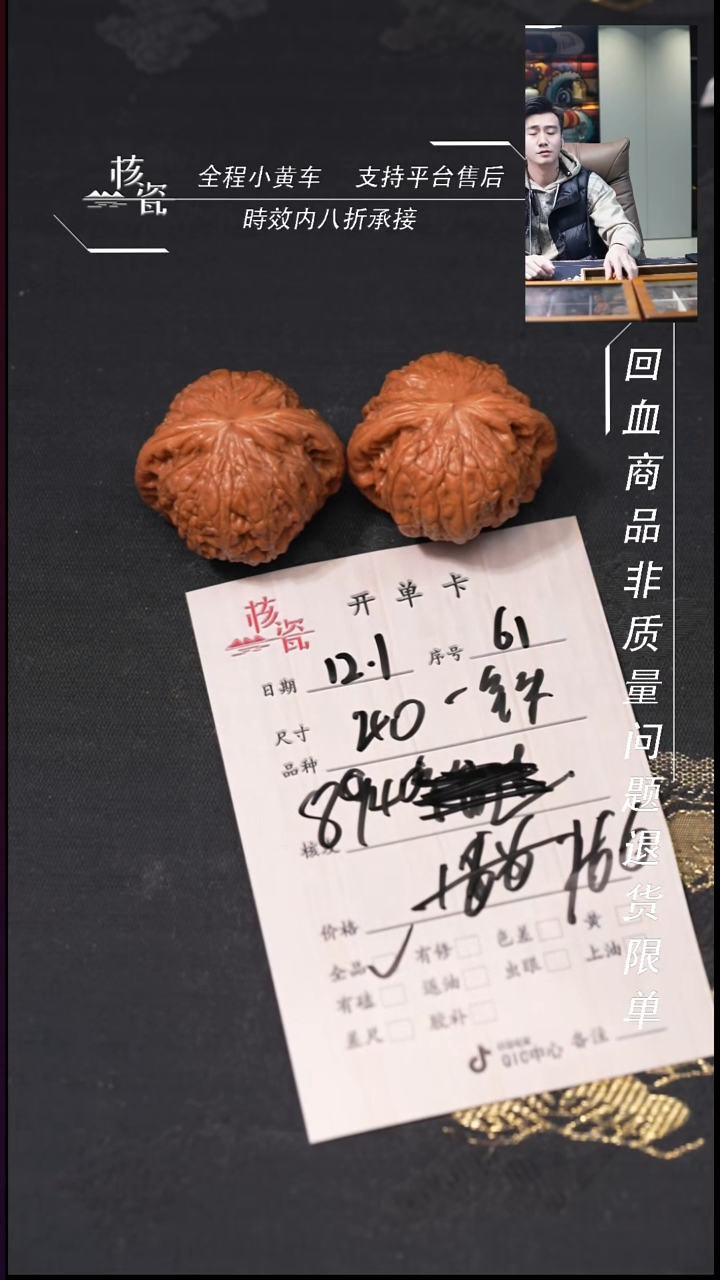 核瓷
全程小黄车 支持平台售后
時效内八折承接
回血商品非质量问题退货限单
核瓷
开单卡
日期 12.1 序号 61
尺寸 240
品种
8940
价格
全品 有修 色差 黄
有磕 返油 虫眼 上油
差尺 胶补
QIC中心 备注